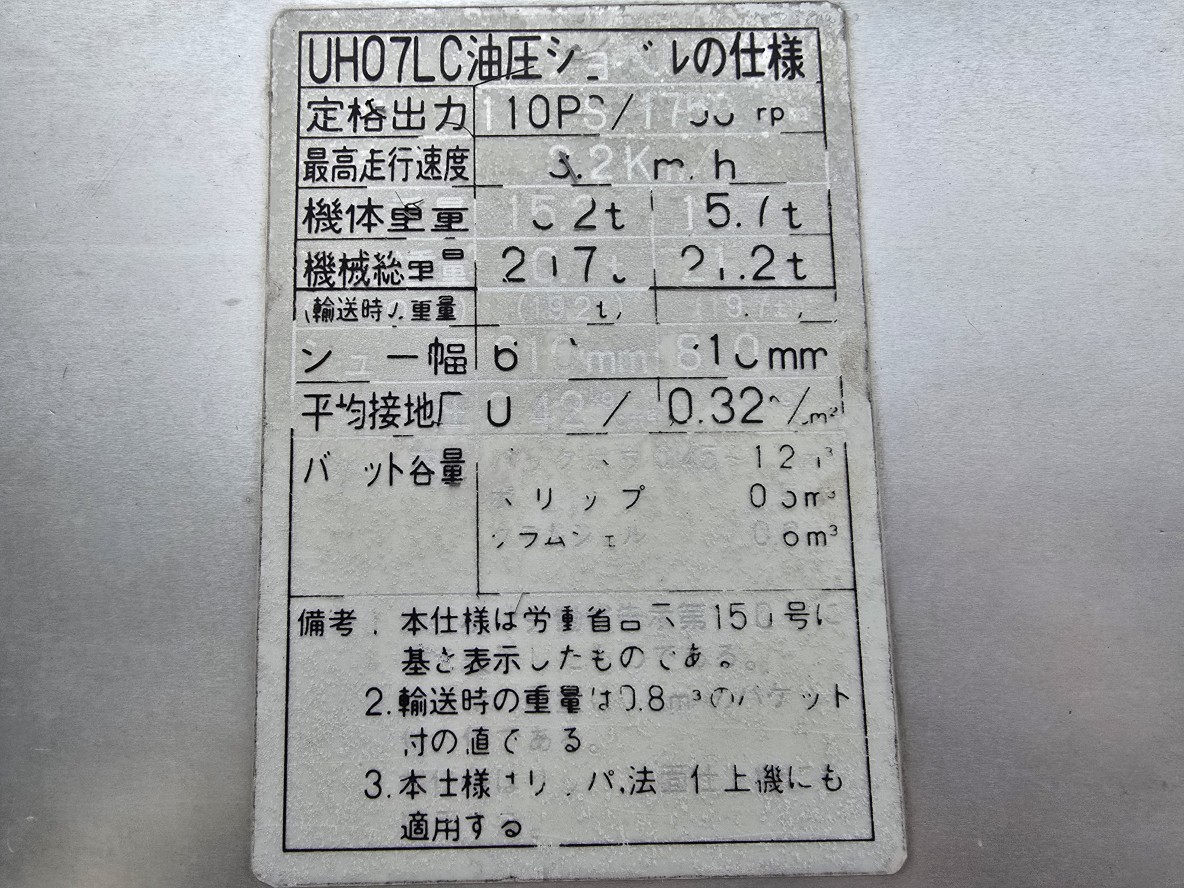 UH07LC油圧ショベルの仕様
定格出力 110PS/ rpm
最高走行速度 3.2Km/h
機体重量 15.2t 15.7t
機械総重量 20.7t 21.2t
(輸送時の重量 (19.2t) (19.7t)
シュー幅 610mm 810mm
平均接地圧 0.42 0.32
バケット容量 1.2m³
リップ
クラムシェル 0.6m³
備考 1. 本仕様は労働省告示第150号に
基き表示したものである。
2. 輸送時の重量は0.8m³のバケット
付の値である。
3. 本仕様はリッパ,法面仕上機にも
適用する。